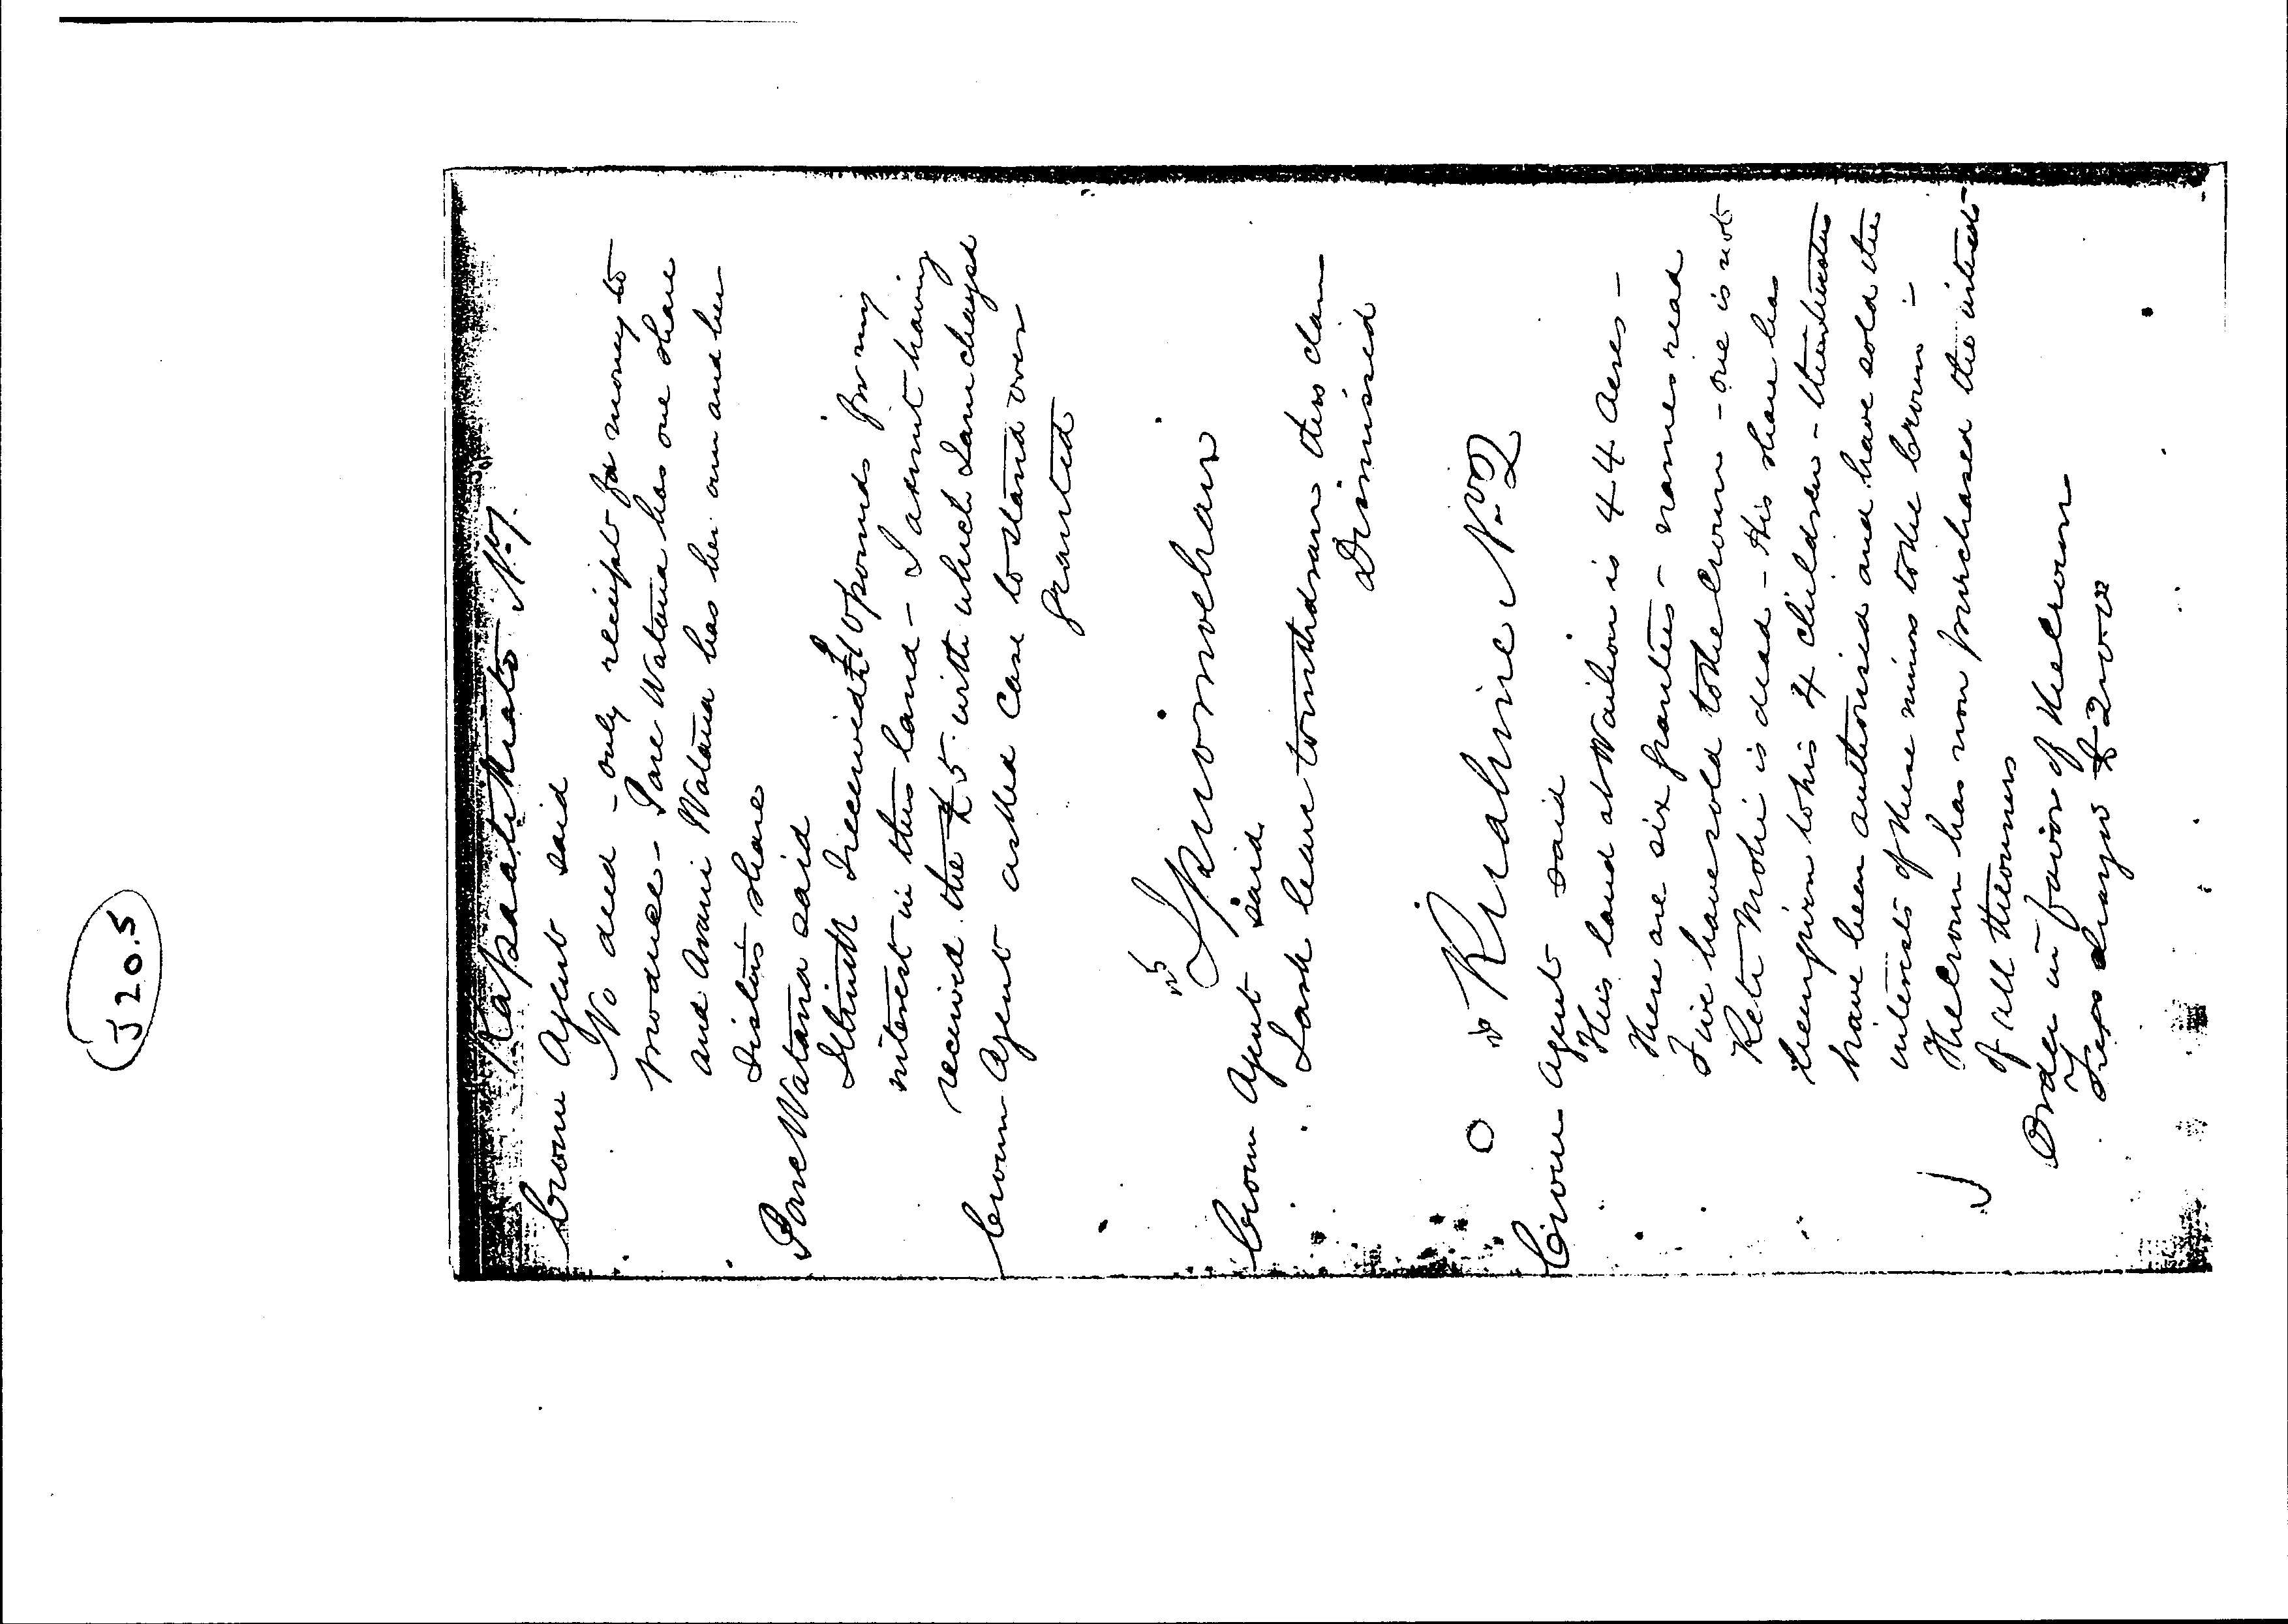 J 20.5
Kapaatihiato No 7.
Crown Agent said
No deed - only receipt for money to
produce - Pare Watana has one share
and Awani Watana has her own and her
Sisters share
Pare Watana said
I think I received £10 pounds for my
interest in this land - I admit having
received the £5. with which I am charged
Crown Agent asked case to stand over
granted
Crown Agent said.
I ask leave to withdraw this claim
Dismissed
Ruahine No 2
Crown Agent said
This land at Waihou is 44 acres -
There are six grantees - names read
Five have sold to the Crown - one is not
Reti Mohi is dead - His share has
been given to his 4 children - the trustees
have been authorised and have sold the
interests of these minors to the Crown -
The Crown has now purchased the interests
of all the owners
Order in favor of the Crown
Fees charged £2-0-0